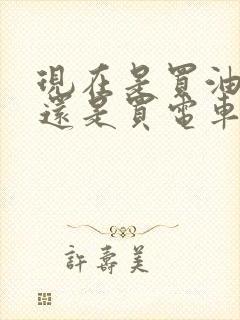 現在是買油
還是買電車
許壽美